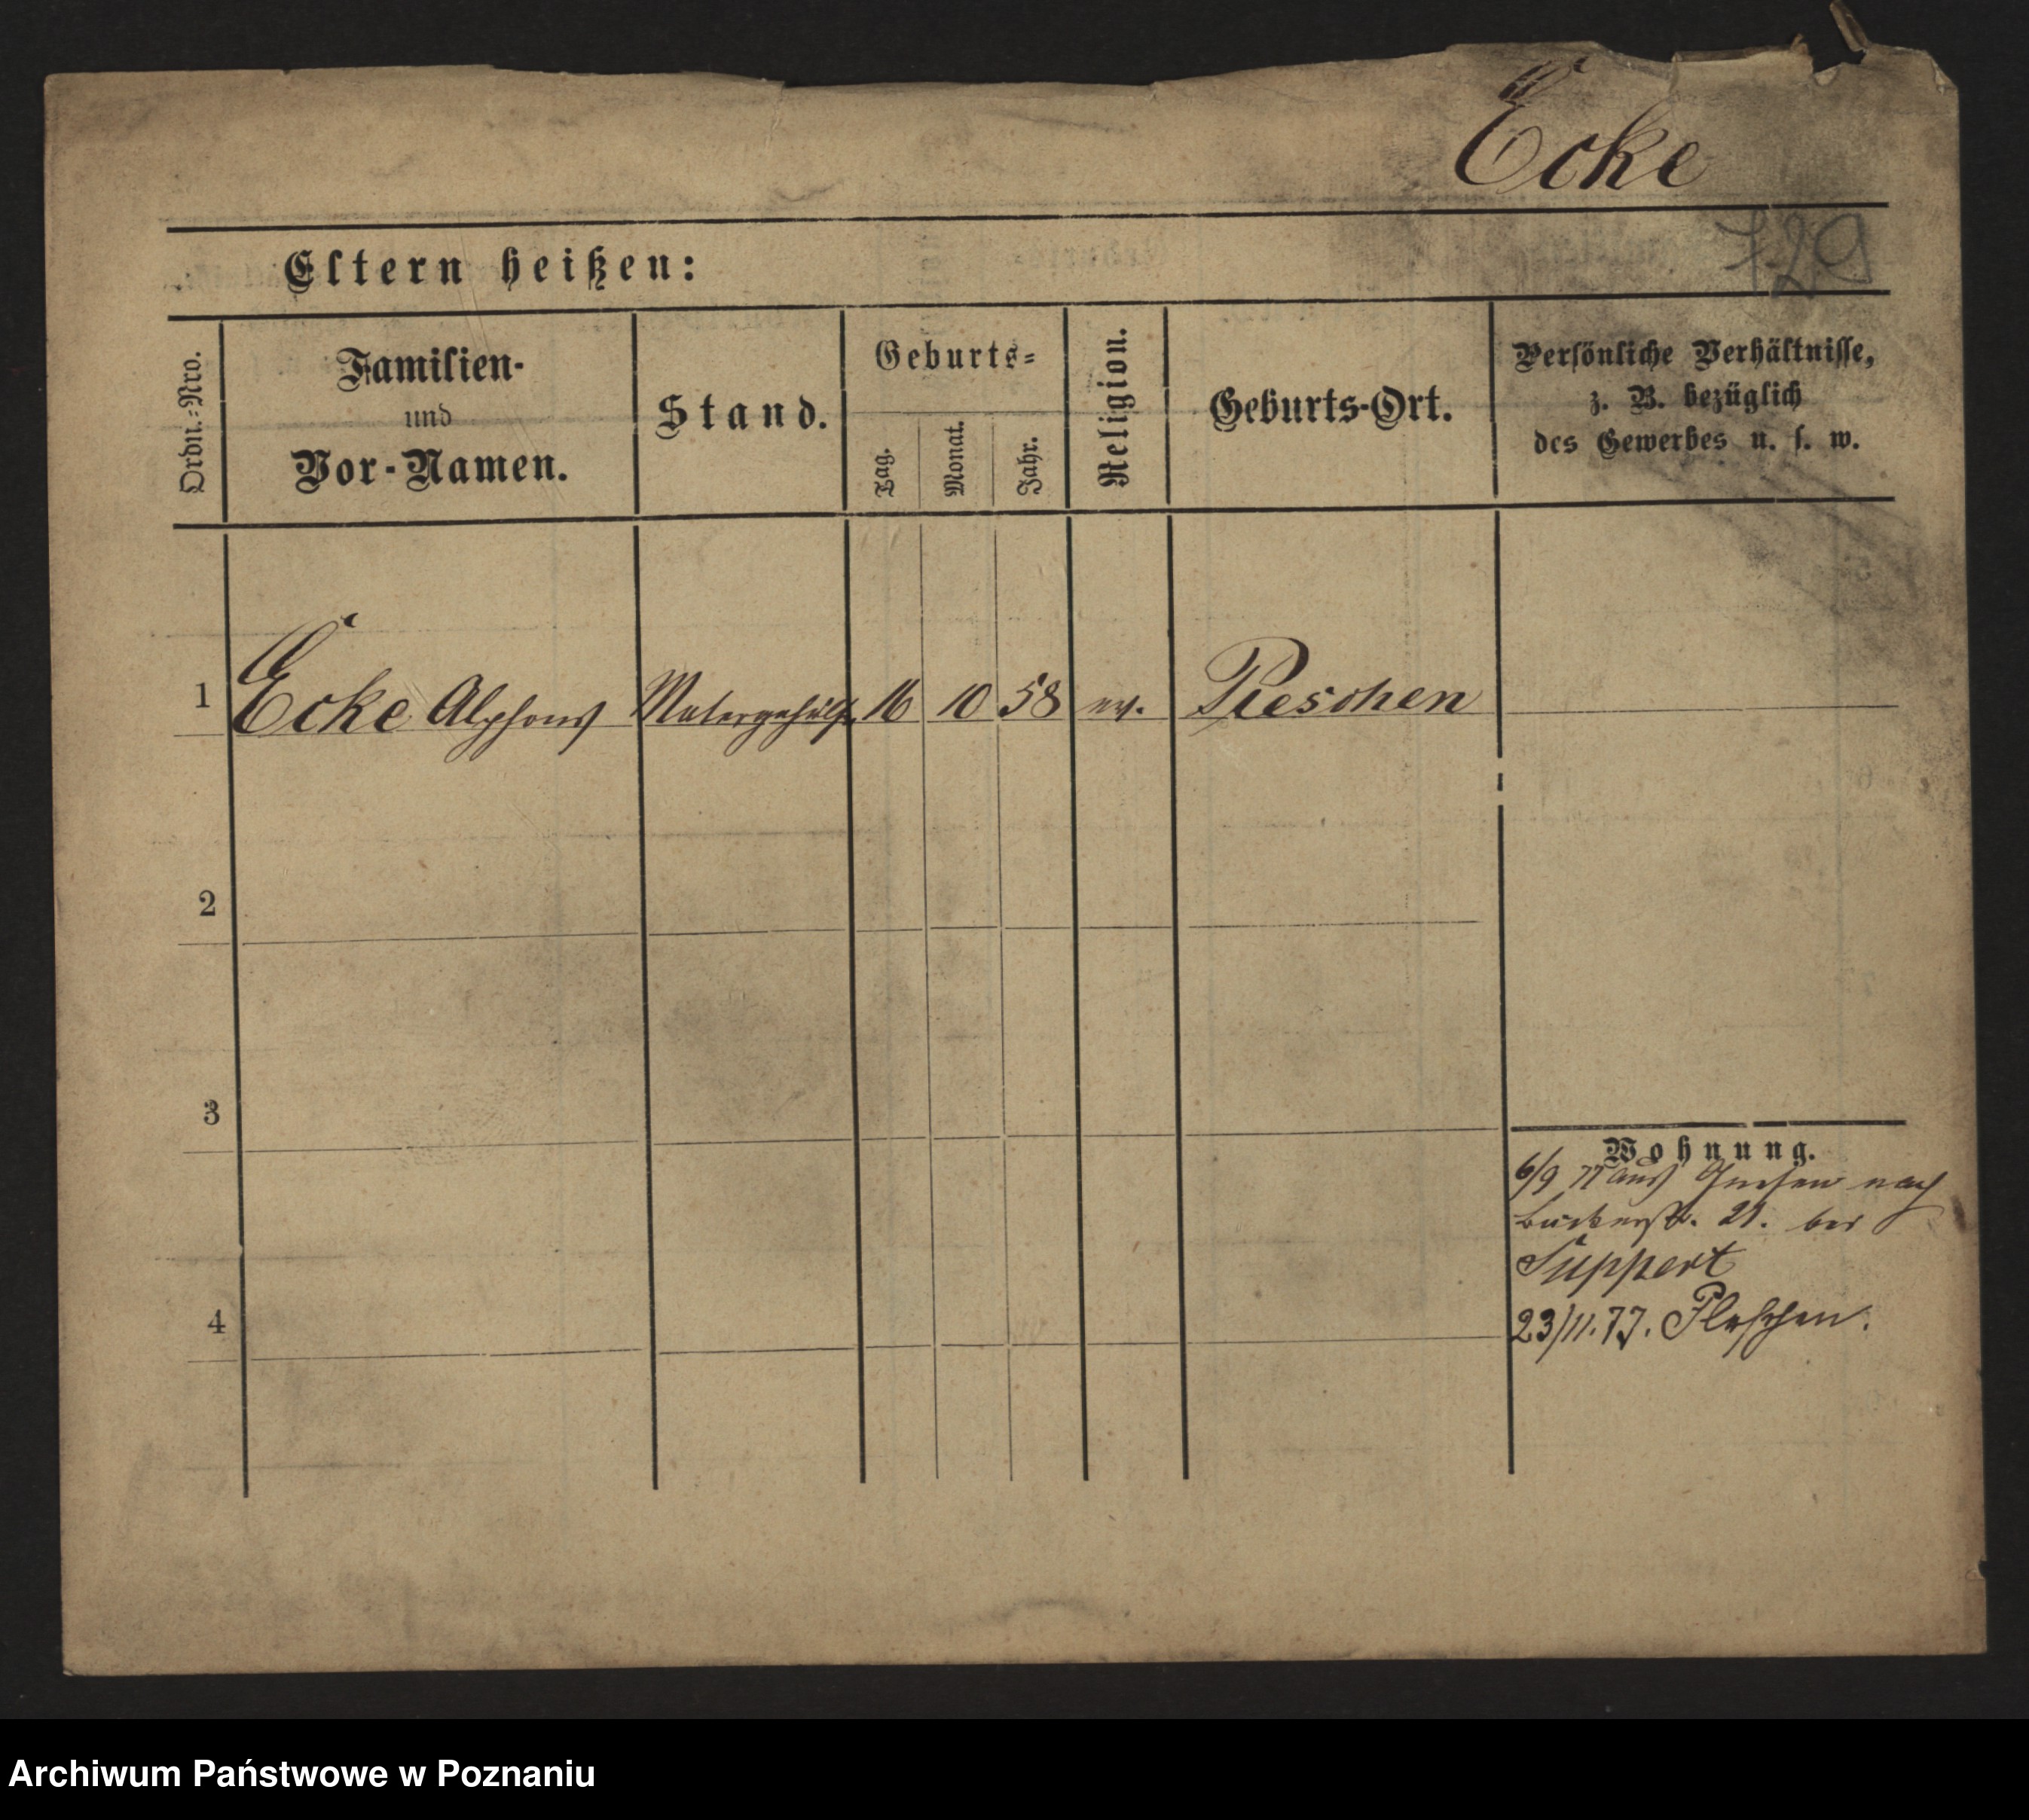 Ecke
729
Eltern heißen:
Ordn.-Nro.
Familien-
und
Vor-Namen.
Stand.
Geburts-
Tag.
Monat.
Jahr.
Religion.
Geburts-Ort.
Persönliche Verhältnisse,
z. B. bezüglich
des Gewerbes u. s. w.
1 Ecke Alphons Malergehülfe 16 10 58 ev. Pleschen
2
3
4
Wohnung.
6/9 77 aus Gnesen nach
21. bei
Suppert
23/11.77. Pleschen.
Archiwum Państwowe w Poznaniu